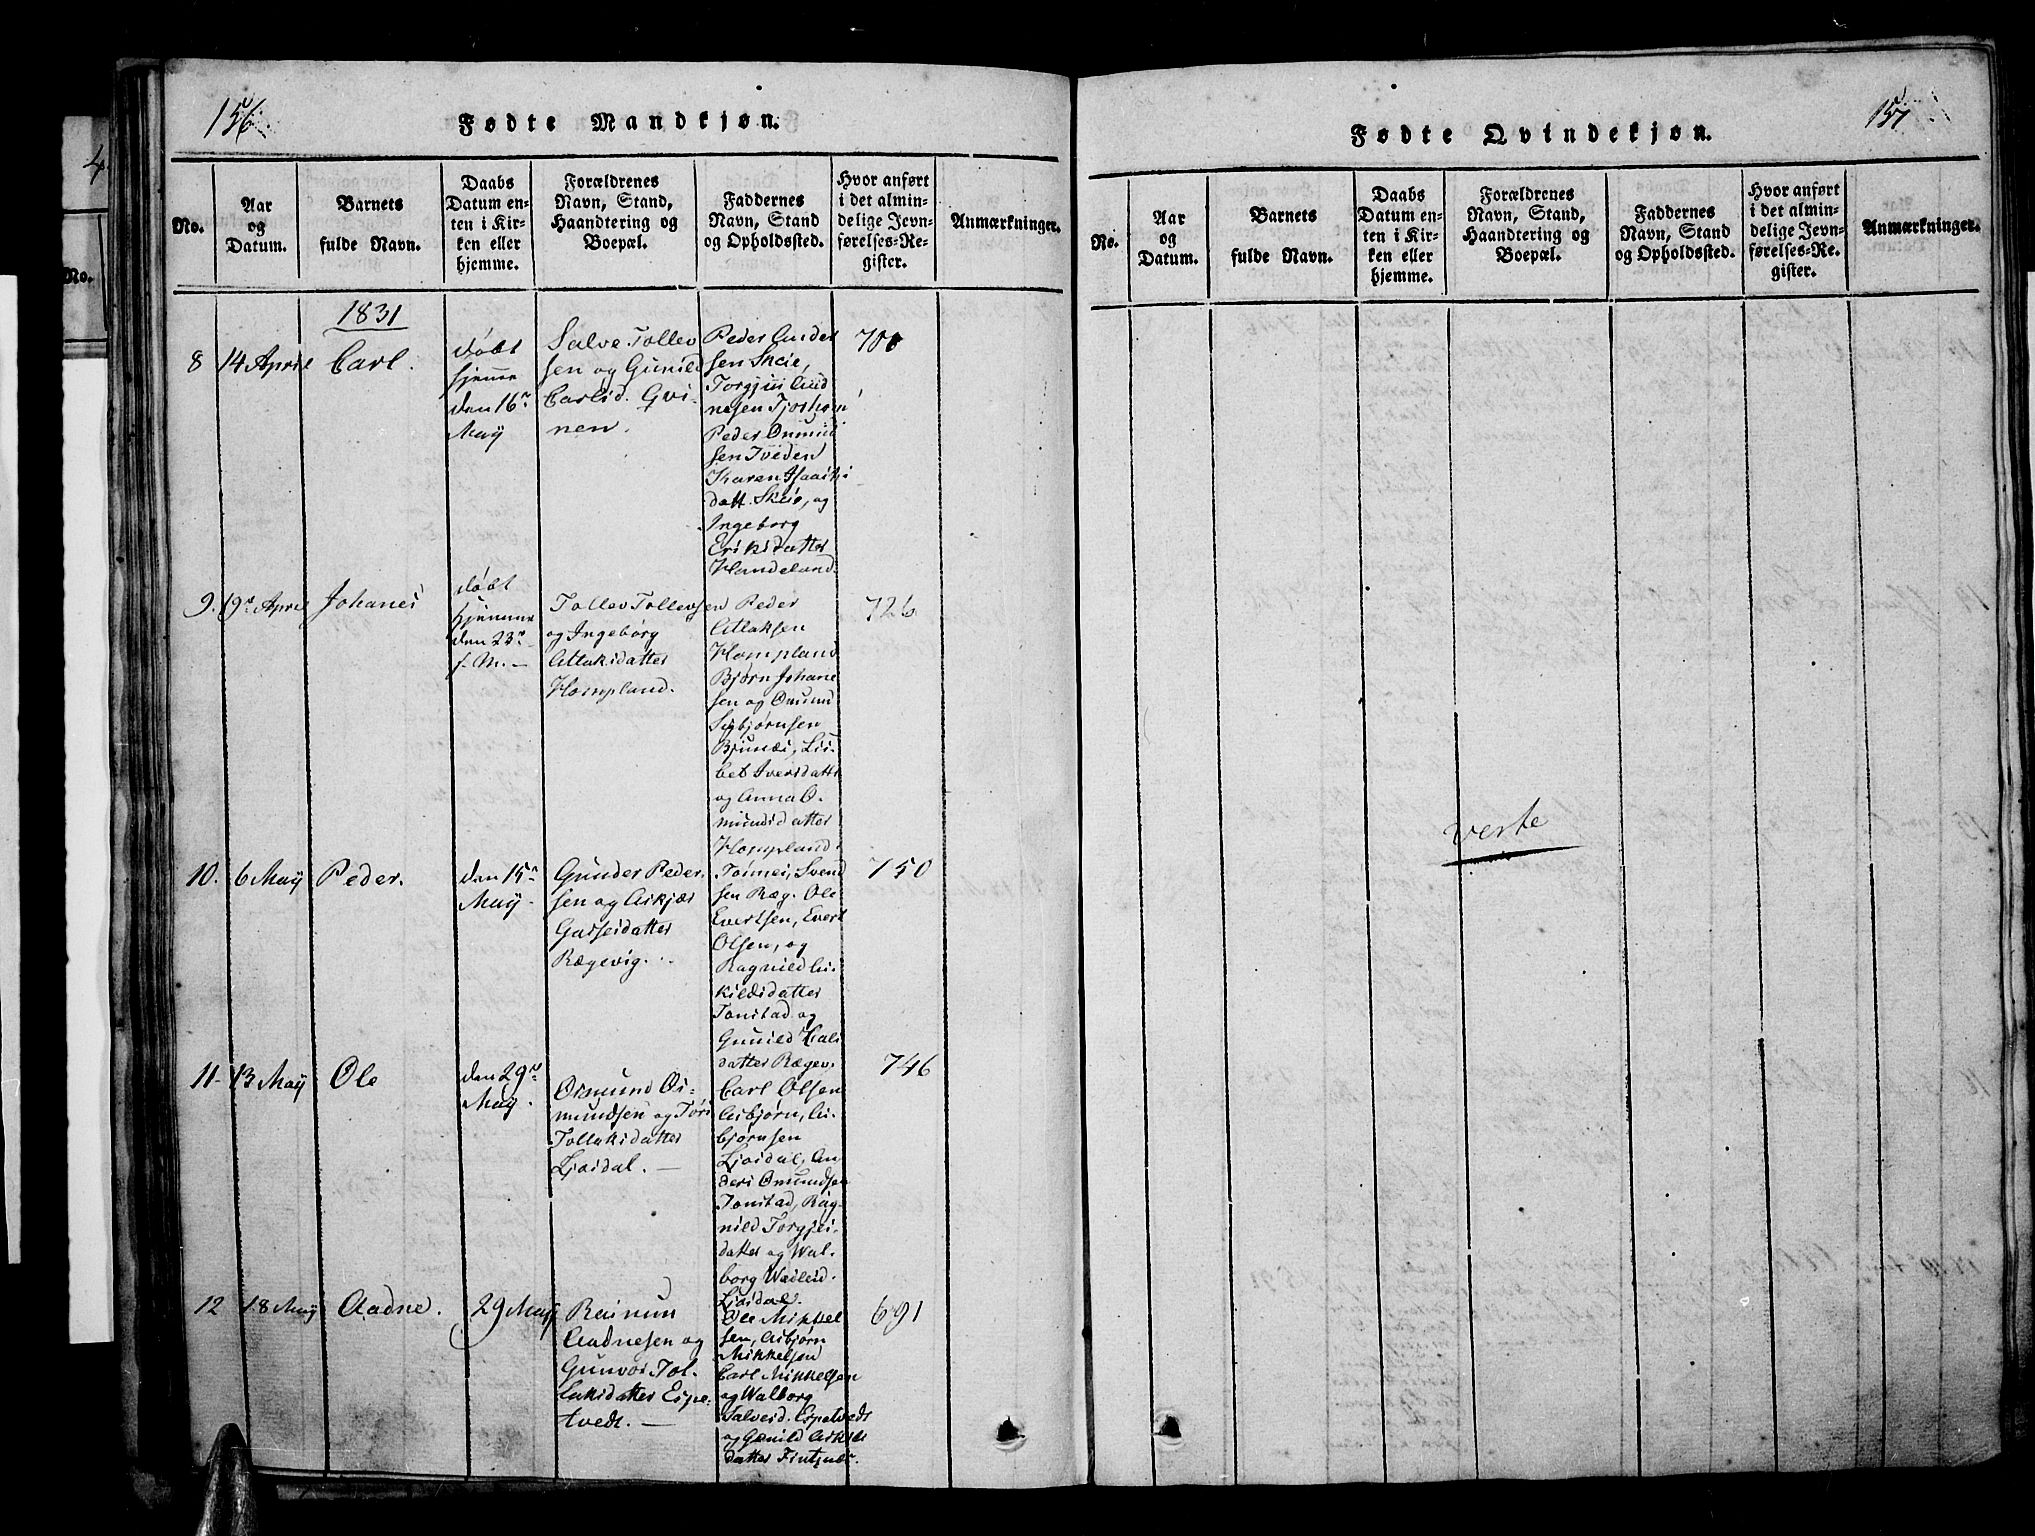 156
Fødte Mandkjøn.
No.
Aar
og
Datum.
Barnets
fulde Navn.
Daabs
Datum en-
ten i Kir-
ken eller
hjemme.
Forældrenes
Navn, Stand,
Haandtering og
Boepæl.
Faddernes
Navn, Stand
og Opholdssted.
Hvor anført
i det almin-
delige Jevn-
førelses-Re-
gister.
Anmærkninger.
1831
8
14 April
Carl.
døbt
hjemme
den 16n
Maÿ
Salve Tollev
sen og Gunild
Carlsd. Qvi-
nen.
Peder Ander
sen Skeie,
Aud
nesen Tjorhom
Peder Onmund
sen Tveden
Karen Isaachs
datt. Skeie, og
Ingeborg
Eriksdatter
Handeland.
700
9.
19de April
Johanes
døbt
hjemme
den 23n
s. M. –
Tollev Tollevsen
og Ingeborg
Atlaksdatter
Hompland.
Peder
Atlaksen
Hompland
Bjørn Johane
sen og Omund
Sigbjørnsen
Bjunes, Lis-
bet Iversdatter
og Anna O-
mundsdatter
Hompland.
726
10.
6 Maÿ
Peder.
den 15n
Maÿ.
Gunder Peder-
sen og Askjær
Gasseidatter
Rægevig.
Tønnes, Svend
sen Ræg. Ole
Evertsen, Evert
Olsen, og
Ragnild As-
kildsdatter
Tonstad og
Gunild Carls
datter Rægev.
750
11.
13 Maÿ
Ole
den 29n
Maÿ.
Osmund Os-
mundsen og Tøri
Tollaksdatter
Ljosdal. –
Carl Olsen
Asbjørn, As-
bjørnsen
Ljosdal, An
ders Omundsen
Tonstad, Rag-
nild Torgjei-
datter og Wal-
borg
Ljosdal.
746
12
18 Maÿ
Aadne.
29 Maÿ
Rasmus
Aadnesen og
Gunvor Tol-
laksdatter Espe-
tvedt. –
Ole Mikkel
sen, Asbjørn
Mikkelsen
Carl Mikkelsen
og Walborg
Salvesd. Espetvedt
og Gunild
datter
691
151
Fødte Qvindekjøn.
No.
Aar
og
Datum.
Barnets
fulde Navn.
Daabs
Datum en-
ten i Kir-
ken eller
hjemme.
Forældrenes
Navn, Stand,
Haandtering og
Boepæl.
Faddernes
Navn, Stand
og Opholdssted.
Hvor anført
i det almin-
delige Jevn-
førelses-Re-
gister.
Anmærkninger.
verte
4
No.